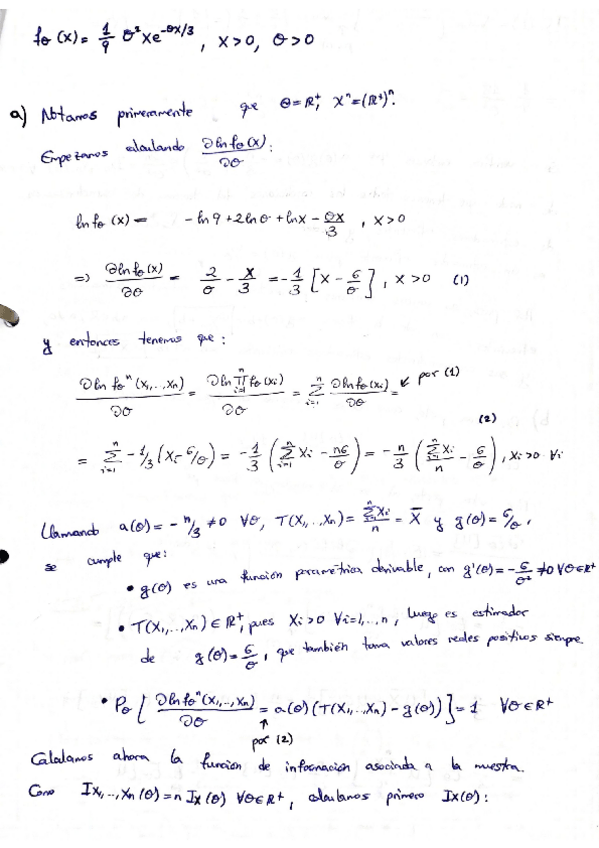 fθ(x) = 1/9 θ²xe^(-θx/3), x>0, θ>0
a) Notamos primeramente que Θ=ℝ⁺, Xⁿ=(ℝ⁺)ⁿ.
Empezamos calculando ∂ln fθ(x)/∂θ:
ln fθ(x) = -ln 9 + 2 ln θ + ln x - θx/3, x>0
⇒ ∂ln fθ(x)/∂θ = 2/θ - x/3 = -1/3 [x - 6/θ], x>0 (1)
y entonces tenemos que:
∂ln fθⁿ(x₁,..,xₙ)/∂θ = ∂ln ∏ᵢ₌₁ⁿ fθ(xᵢ)/∂θ = Σᵢ₌₁ⁿ ∂ln fθ(xᵢ)/∂θ = ↙ por (1)
(2)
= Σᵢ₌₁ⁿ -1/3 (xᵢ-6/θ) = -1/3 (Σᵢ₌₁ⁿ xᵢ - n6/θ) = -n/3 (Σᵢ₌₁ⁿ xᵢ/n - 6/θ), xᵢ>0 ∀i
Llamando a(θ) = -n/3 ≠0 ∀θ, T(X₁,..,Xₙ) = Σᵢ₌₁ⁿ Xᵢ/n = X̄ y g(θ)=6/θ,
se cumple que:
• g(θ) es una función paramétrica derivable, con g'(θ)=-6/θ² ≠0 ∀θ∈ℝ⁺
• T(X₁,..,Xₙ) ∈ ℝ⁺, pues Xᵢ>0 ∀i=1,..,n, luego es estimador
de g(θ)=6/θ, que también toma valores reales positivos siempre.
• Pθ [∂ln fθⁿ(X₁,..,Xₙ)/∂θ = a(θ)(T(X₁,..,Xₙ) - g(θ))] = 1 ∀θ∈ℝ⁺
↑
por (2)
Calculamos ahora la función de información asociada a la muestra.
Como I_X₁,..,Xₙ(θ) = n I_X(θ) ∀θ∈ℝ⁺, calculamos primero I_X(θ):